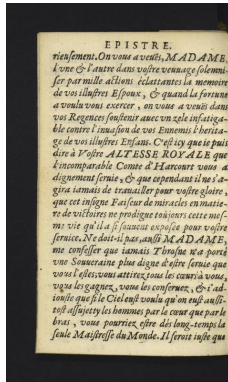 EPISTRE.
rieusement. On vous a veuës, MADAME,
l'vne & l'autre dans vostre veuuage solemni-
ser par mille actions éclattantes la memoire
de vos illustres Espoux, & quand la fortune
a voulu vous exercer, on vous a veuës dans
vos Regences soustenir auec vn zele infatiga-
ble contre l'inuasion de vos Ennemis l'herita-
ge de vos illustres Enfans. C'est icy que ie puis
dire à Vostre ALTESSE ROYALE que
l'incomparable Comte d'Harcourt vous a
dignement seruie, & que cependant il ne s'a-
gira iamais de trauailler pour vostre gloire,
que cet insigne Faiseur de miracles en matie-
re de victoires ne prodigue toûjours cette mes-
me vie qu'il a si souuent exposée pour vostre
seruice. Ne doit-il pas, aussi MADAME,
me confesser que iamais Throsne n'a porté
vne Souueraine plus digne d'estre seruie que
vous l'estes; vous attirez tous les cœurs à vous,
vous les gagnez, vous les conseruez, & i'ad-
iouste que si le Ciel eust voulu qu'on eust aussi-
tost assujetty les hommes par le cœur que par le
bras, vous pourriez estre dés long-temps la
seule Maistresse du Monde. Il seroit iuste que